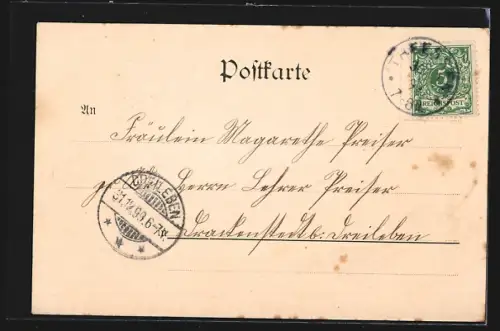 Postkarte
THEE
5
REICHSPOST
An
Fräulein Magarethe Preiser
Herrn Lehrer Preiser
Drackenstedt b. Dreileben
31.12.99. 6-7N.